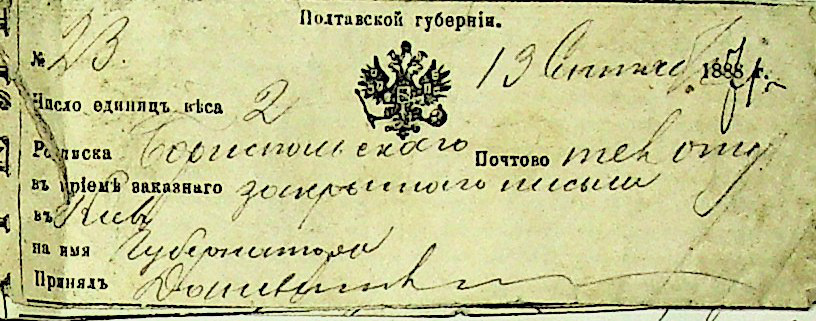 Полтавской губерніи.
№ 23. 13 Сентября 1888 г.
Число единицъ вѣса 2
Росписка Бориспольскаго Почтово телк отд
въ пріемѣ заказнаго закрытаго письма
въ Кіевъ
на имя Губернатора
Принялъ